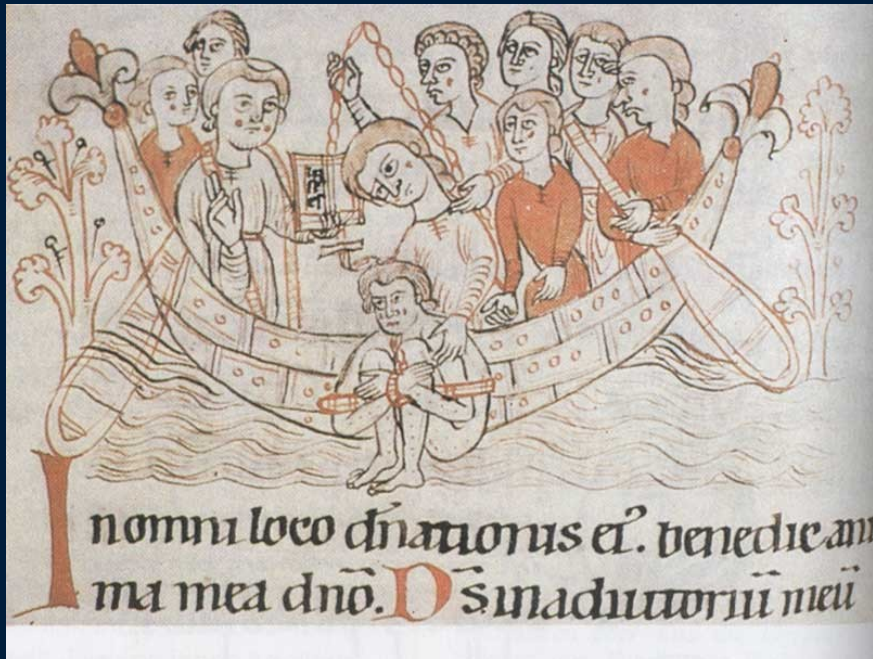 In omni loco dn̄ationis ei᾿. benedic ani
ma mea dn̄o. Ds̄ inadiutoriū meū